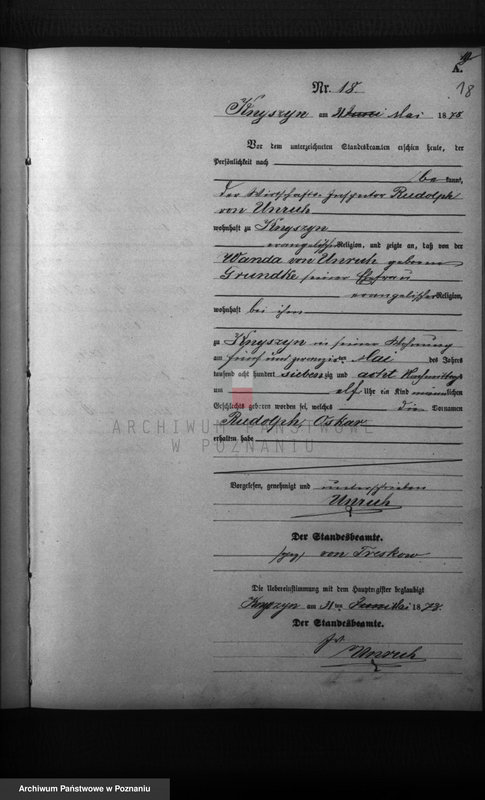 A.
18
Nr. 18
Knyszyn am 31 Juni Mai 1878
Vor dem unterzeichneten Standesbeamten erschien heute, der
Persönlichkeit nach
be kannt,
der Wirthschafts-Inspektor Rudolph
von Unruh
wohnhaft zu Knyszyn
evangelischer Religion, und zeigte an, daß von der
Wanda von Unruh geborne
Grundke seiner Ehefrau
evangelischer Religion,
wohnhaft bei ihm
zu Knyszyn in seiner Wohnung
am fünf und zwanzigsten Mai des Jahres
tausend acht hundert siebenzig und acht Nachmittags
um elf Uhr ein Kind männlichen
Geschlechts geboren worden sei, welches die Vornamen
Rudolph, Oskar
erhalten habe
ARCHIWUM PAŃSTWOWE
W POZNANIU
Vorgelesen, genehmigt und unterschrieben
Unruh
Der Standesbeamte.
(gez) von Treskow
Die Uebereinstimmung mit dem Hauptregister beglaubigt
Knyszyn am 31ten Juni Mai 1878.
Der Standesbeamte.
Unruh
Archiwum Państwowe w Poznaniu